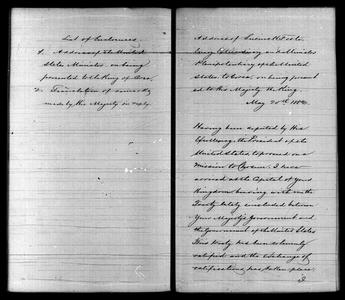 List of Enclosures.
1. Address of the United
States Minister on being
presented to the King of Corea.
2. Translation of remarks
made by His Majesty in reply.
Address of Lucius H. Foote
Envoy Extraordinary and Minister
Plenipotentiary of the United
States to Corea, on being present
ed to His Majesty the King.
May 20th 1883.
Having been deputed by His
Excellency, the President of the
United States, to proceed on a
mission to Chosen, I have
arrived at the Capital of your
Kingdom bearing with me the
Treaty lately concluded between
Your Majesty's Government and
the Government of the United States
This treaty has been solemnly
ratified and the exchange of
ratifications has taken place.